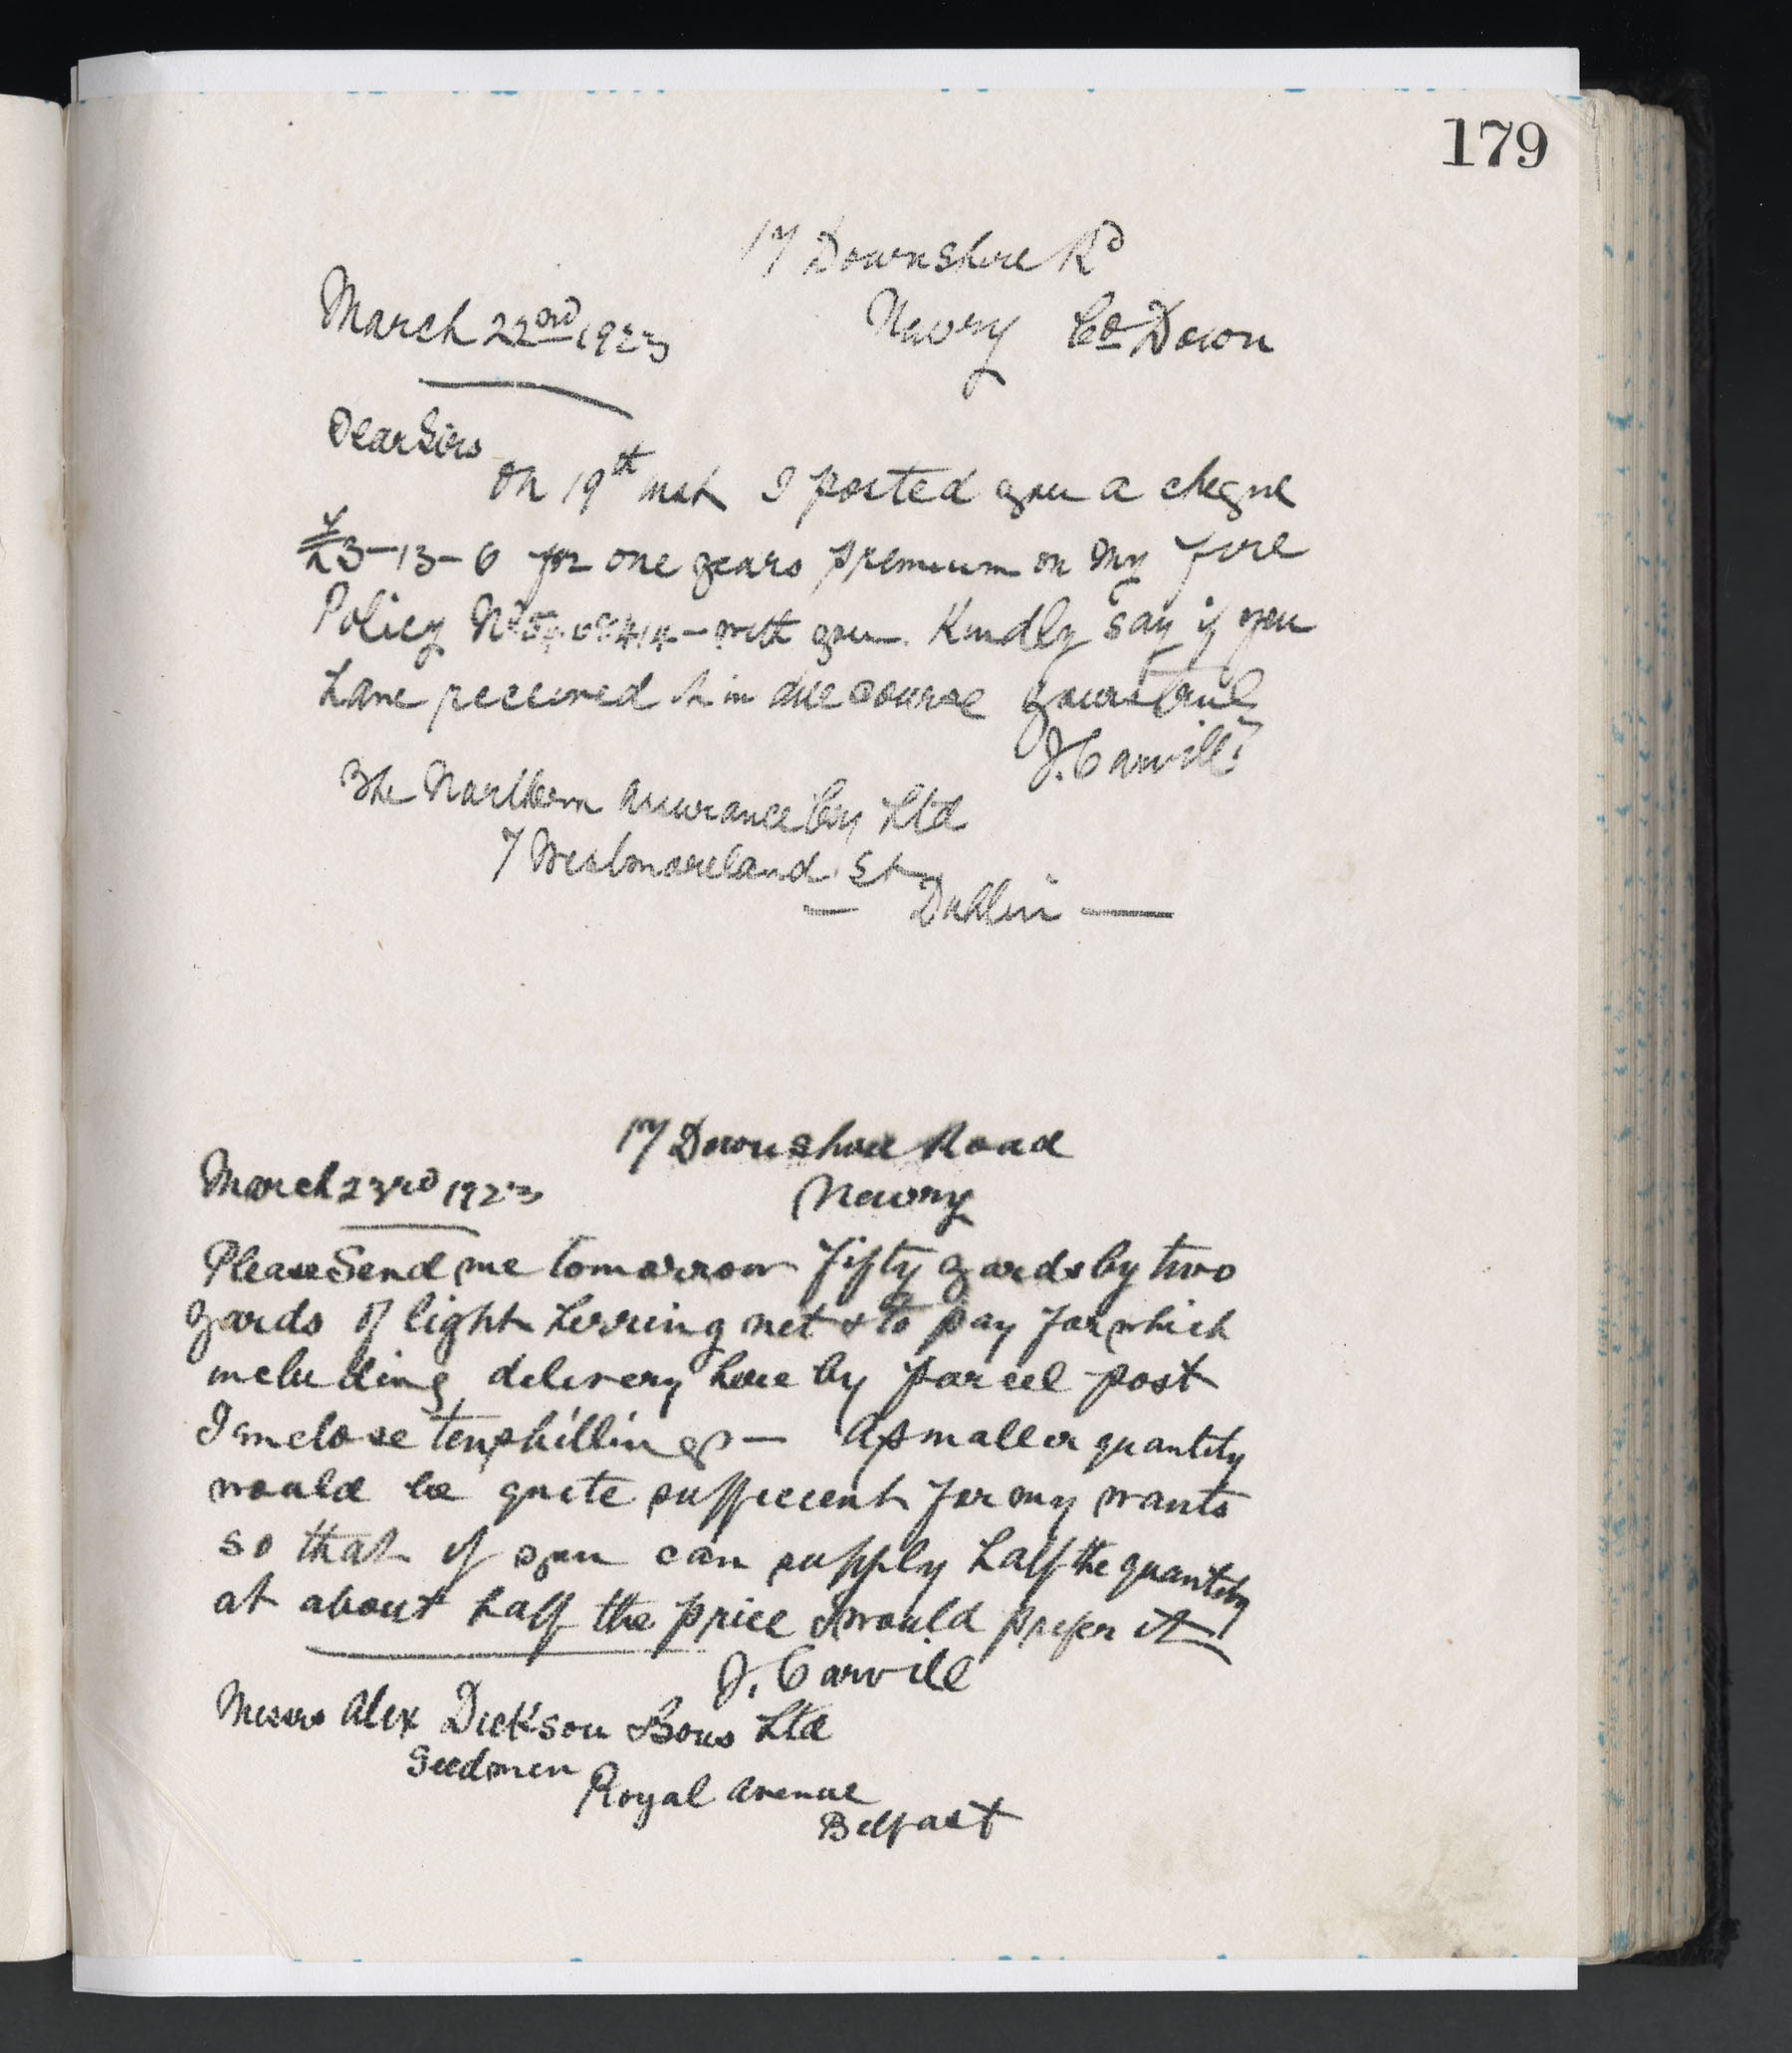 179
17 Downshire Rd
March 22nd 1923
Newry Co Down
Dear Sirs
On 19th inst I posted you a cheque
£3-13-6 for one years premium on my fire
Policy No with you. Kindly say if you
have received it in due course yours truly
J. Carvill
The Northern Assurance Coy Ltd
7 Westmoreland St
Dublin
17 Downshire Road
March 23rd 1923
Newry
Please Send me tomorrow fifty yards by two
yards of light herring net & to pay for which
including delivery here by parcel post
I enclose ten shillings — A smaller quantity
would be quite sufficient for my wants
so that if you can supply half the quantity
at about half the price I would prefer it
J. Carvill
Messrs Alex Dickson & Sons Ltd
Seedmen
Royal Avenue
Belfast